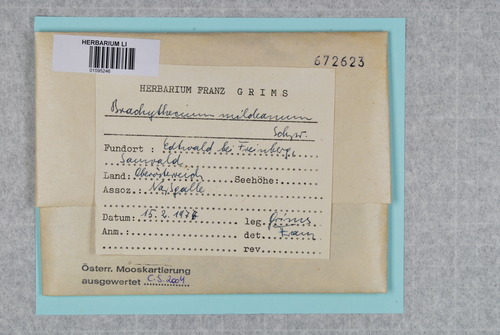 HERBARIUM LI
01595246
672623
HERBARIUM FRANZ GRIMS
Brachythecium mildeanum
Schpr.
Fundort : Edtwald bei Freinberg,
Sauwald
Land: Oberösterreich Seehöhe:
Assoz.
Datum: 15.2.1976 leg. Grims
Anm.: det. Franz
rev.
Österr. Mooskartierung
ausgewertet C.S. 2004